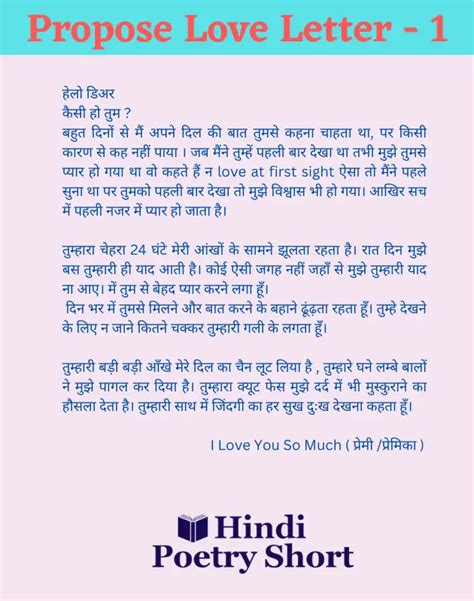 Propose Love Letter - 1
हेलो डिअर
कैसी हो तुम ?
बहुत दिनों से मैं अपने दिल की बात तुमसे कहना चाहता था, पर किसी
कारण से कह नहीं पाया । जब मैंने तुम्हें पहली बार देखा था तभी मुझे तुमसे
प्यार हो गया था वो कहते हैं न love at first sight ऐसा तो मैंने पहले
सुना था पर तुमको पहली बार देखा तो मुझे विश्वास भी हो गया। आखिर सच
में पहली नजर में प्यार हो जाता है।
तुम्हारा चेहरा 24 घंटे मेरी आंखों के सामने झूलता रहता है। रात दिन मुझे
बस तुम्हारी ही याद आती है। कोई ऐसी जगह नहीं जहाँ से मुझे तुम्हारी याद
ना आए। में तुम से बेहद प्यार करने लगा हूँ।
दिन भर में तुमसे मिलने और बात करने के बहाने ढूंढ़ता रहता हूँ। तुम्हे देखने
के लिए न जाने कितने चक्कर तुम्हारी गली के लगता हूँ।
तुम्हारी बड़ी बड़ी आँखे मेरे दिल का चैन लूट लिया है , तुम्हारे घने लम्बे बालों
ने मुझे पागल कर दिया है। तुम्हारा क्यूट फेस मुझे दर्द में भी मुस्कुराने का
हौसला देता है। तुम्हारी साथ में जिंदगी का हर सुख दुःख देखना कहता हूँ।
I Love You So Much ( प्रेमी /प्रेमिका )
Hindi
Poetry Short